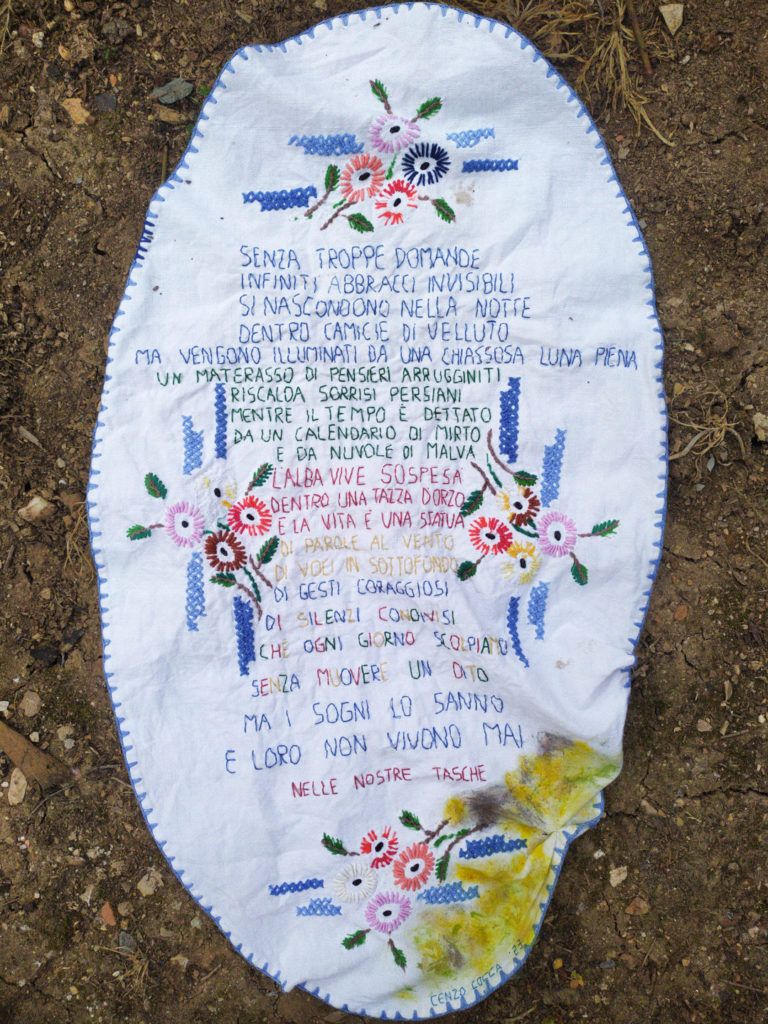 SENZA TROPPE DOMANDE
INFINITI ABBRACCI INVISIBILI
SI NASCONDONO NELLA NOTTE
DENTRO CAMICIE DI VELLUTO
MA VENGONO ILLUMINATI DA UNA CHIASSOSA LUNA PIENA
UN MATERASSO DI PENSIERI ARRUGGINITI
RISCALDA SORRISI PERSIANI
MENTRE IL TEMPO È DETTATO
DA UN CALENDARIO DI MIRTO
E DA NUVOLE DI MALVA
L'ALBA VIVE SOSPESA
DENTRO UNA TAZZA D'ORZO
E LA VITA È UNA STATUA
DI PAROLE AL VENTO
DI VOCI IN SOTTOFONDO
DI GESTI CORAGGIOSI
DI SILENZI CONDIVISI
CHE OGNI GIORNO SCOLPIAMO
SENZA MUOVERE UN DITO
MA I SOGNI LO SANNO
E LORO NON VIVONO MAI
NELLE NOSTRE TASCHE
CENZO COCCA 23